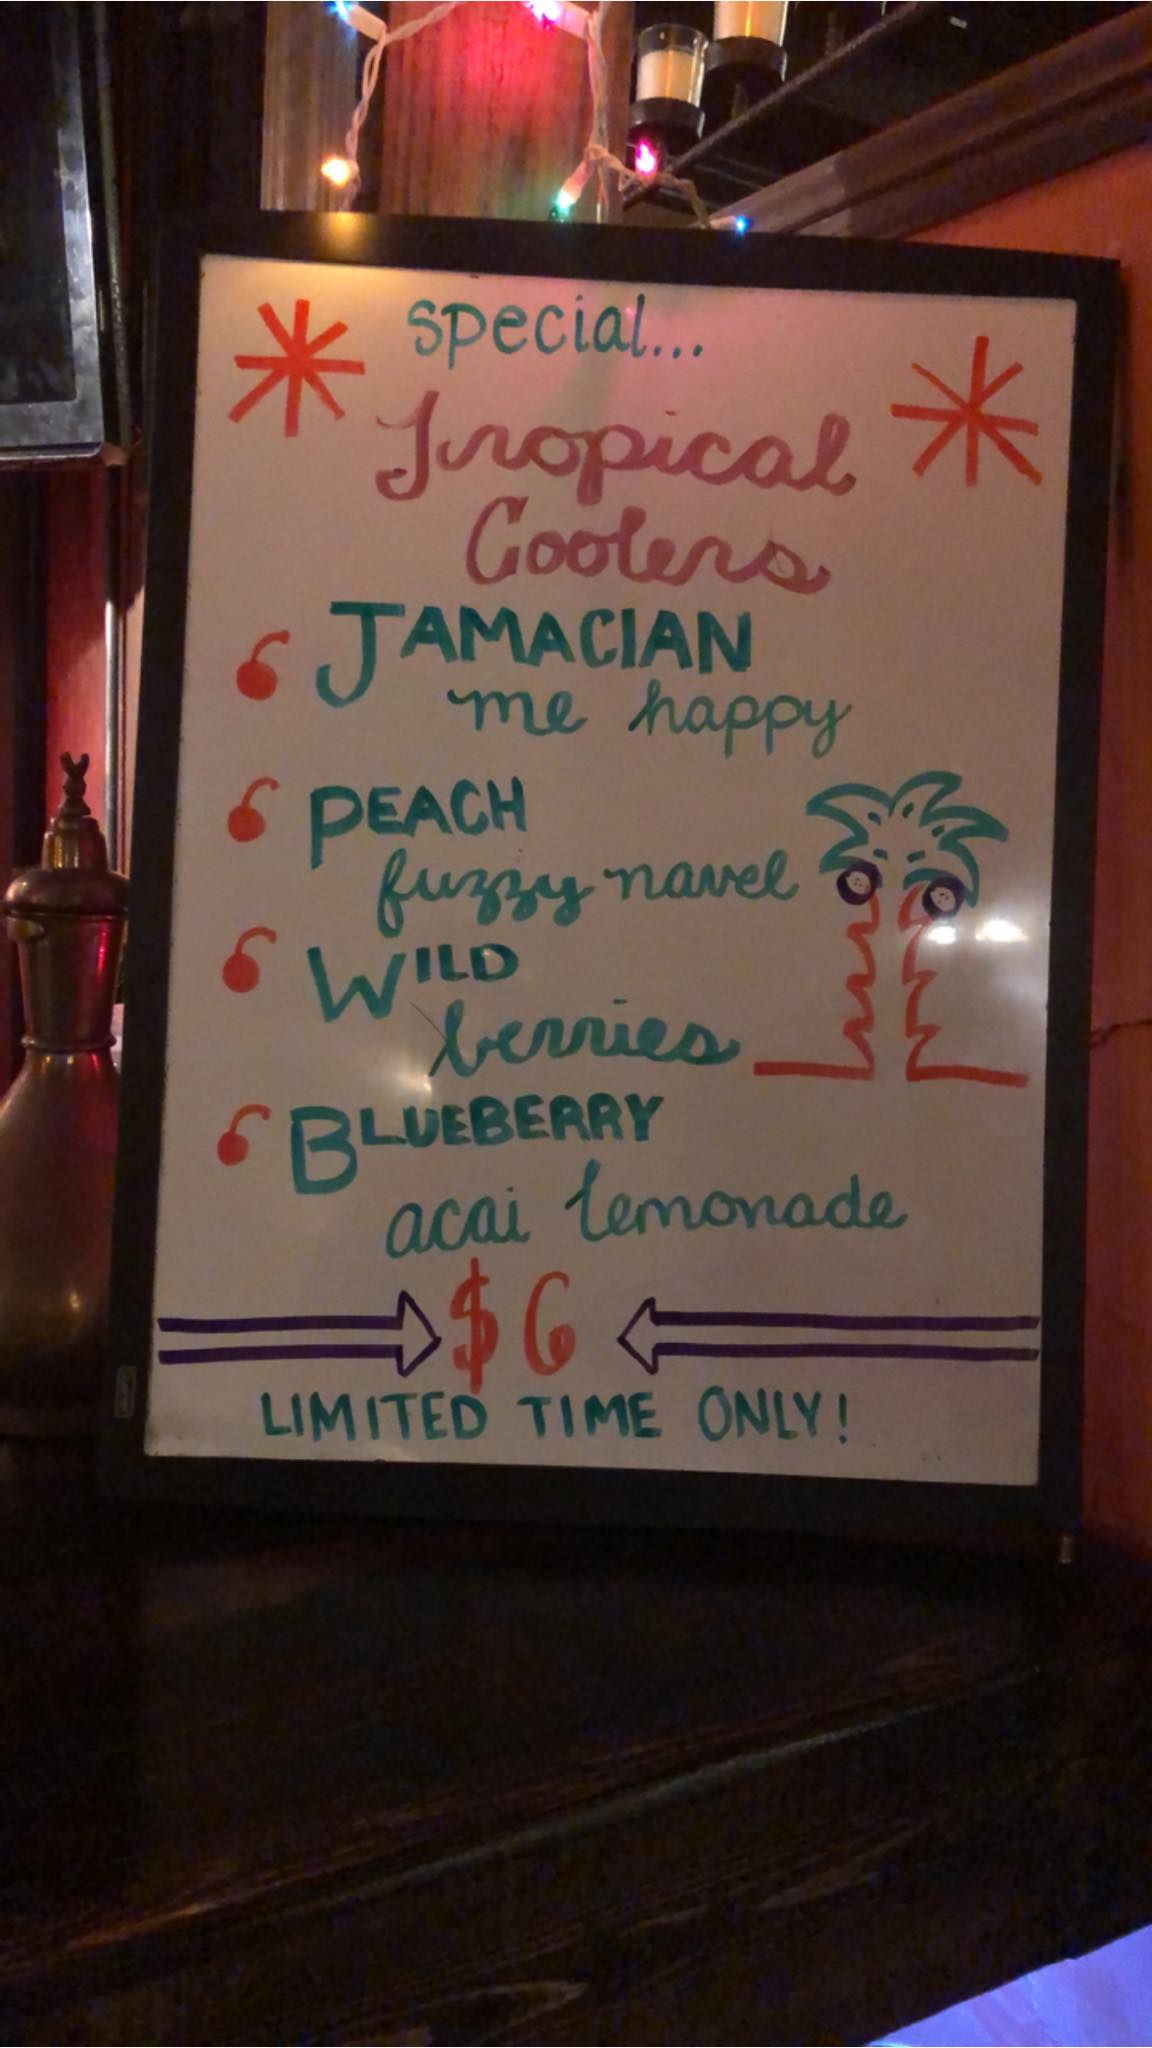 special...
Tropical
Coolers
JAMACIAN
me happy
PEACH
fuzzy navel
WILD
berries
BLUEBERRY
acai lemonade
$6
LIMITED TIME ONLY!